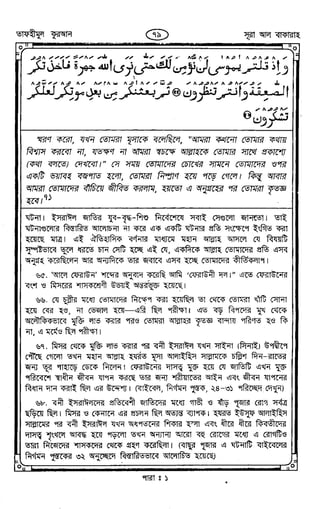 তাফহীমুল কুরআন
৭৯
সূরা আল বাকারাহ
وَإِذْ قُلْتُمْ يٰمُوسٰى لَنْ نُّؤْمِنَ لَكَ حَتّٰى نَرَى اللهَ جَهْرَةً فَاَخَذَتْكُمُ
الصّٰعِقَةُ وَاَنْتُمْ تَنْظُرُوْنَ ۝ ثُمَّ بَعَثْنٰكُمْ مِّنْۢ بَعْدِ مَوْتِكُمْ لَعَلَّكُمْ
تَشْكُرُوْنَ ۝
স্মরণ করো, যখন তোমরা মূসাকে বলেছিলে, “আমরা কখনো তোমার কথায়
বিশ্বাস করবো না, যতক্ষণ না আমরা স্বচক্ষে আল্লাহকে তোমার সাথে প্রকাশ্যে
(কথা বলতে) দেখবো।” সে সময় তোমাদের চোখের সামনে তোমাদের ওপর
একটি ভয়াবহ বজ্রপাত হলো, তোমরা নিষ্প্রাণ হয়ে পড়ে গেলে। কিন্তু আবার
আমরা তোমাদের বাঁচিয়ে জীবিত করলাম, হয়তো এ অনুগ্রহের পর তোমরা কৃতজ্ঞ
হবে।৭১
ঘটনা। ইসরাঈল জাতির যুব-বৃদ্ধ-শিশু নির্বিশেষে সবাই সেগুলো জানতো। তাই
ঘটনাগুলোর বিস্তারিত আলোচনা না করে এক একটি ঘটনার প্রতি সংক্ষেপে ইংগিত করা
হয়েছে মাত্র। এই ঐতিহাসিক বর্ণনার মাধ্যমে মহান আল্লাহ আসলে যে বিষয়টি
সুস্পষ্টভাবে তুলে ধরতে চান সেটি হচ্ছে এই যে, একদিকে আল্লাহ তোমাদের প্রতি এসব
অনুগ্রহ করেছিলেন আর অন্যদিকে তার জবাবে এসব হচ্ছে তোমাদের কীর্তিকলাপ।
৬৫. ‘আলে ফেরাউন’ শব্দের অনুবাদ করেছি আমি ‘ফেরাউনী দল।” এতে ফেরাউনের
বংশ ও মিসরের শাসকশ্রেণী উভয়ই অন্তরভুক্ত হয়েছে।
৬৬. যে চুল্লীর মধ্যে তোমাদের নিক্ষেপ করা হয়েছিল তা থেকে তোমরা খাঁটি সোনা
হয়ে বের হও, না ভেজাল হয়ে—এরি ছিল পরীক্ষা। এত বড় বিপদের মুখ থেকে
অলৌকিকভাবে মুক্তি লাভ করার পরও তোমরা আল্লাহর কৃতজ্ঞ বান্দায় পরিণত হও কি
না, এ মর্মেও ছিল পরীক্ষা।
৬৭. মিসর থেকে মুক্তি লাভ করার পর বনী ইসরাঈল যখন সাইনা (সিনাই) উপদ্বীপে
পৌঁছে গেলো তখন মহান আল্লাহ হযরত মূসা আলাইহিস সালামকে চল্লিশ দিন-রাতের
জন্য তূর পাহাড়ে ডেকে নিলেন। ফেরাউনের দাসত্ব মুক্ত হয়ে যে জাতিটি এখন মুক্ত
পরিবেশে স্বাধীন জীবন যাপন করছে তার জন্য শরীয়াতের আইন এবং জীবন যাপনের
বিধান দান করাই ছিল এর উদ্দেশ্য। (বাইবেল, নির্গমন পুস্তক, ২৪-৩১ পরিচ্ছেদ দেখুন)
৬৮. বনী ইসরাঈলদের প্রতিবেশী জাতিদের মধ্যে গাভী ও ষাঁড় পূজার রোগ সর্বত্র
ছড়িয়ে ছিল। মিসর ও কেনানে এর প্রচলন ছিল অত্যন্ত ব্যাপক। হযরত ইউসুফ আলাইহিস
সালামের পর বনী ইসরাঈল যখন অধপতনের শিকার হলো এবং ধীরে ধীরে কিবতীদের
দাসত্ব শৃংখলে আবদ্ধ হয়ে পড়লো তখন অন্যান্য আরো বহু রোগের মধ্যে এ রোগটিও
তারা নিজেদের শাসকদের থেকে গ্রহণ করেছিল। (বাছুর পূজার এ ঘটনাটি বাইবেলের
নির্গমন পুস্তকের ৩২ অনুচ্ছেদে বিস্তারিতভাবে আলোচিত হয়েছে)
পারা : ১